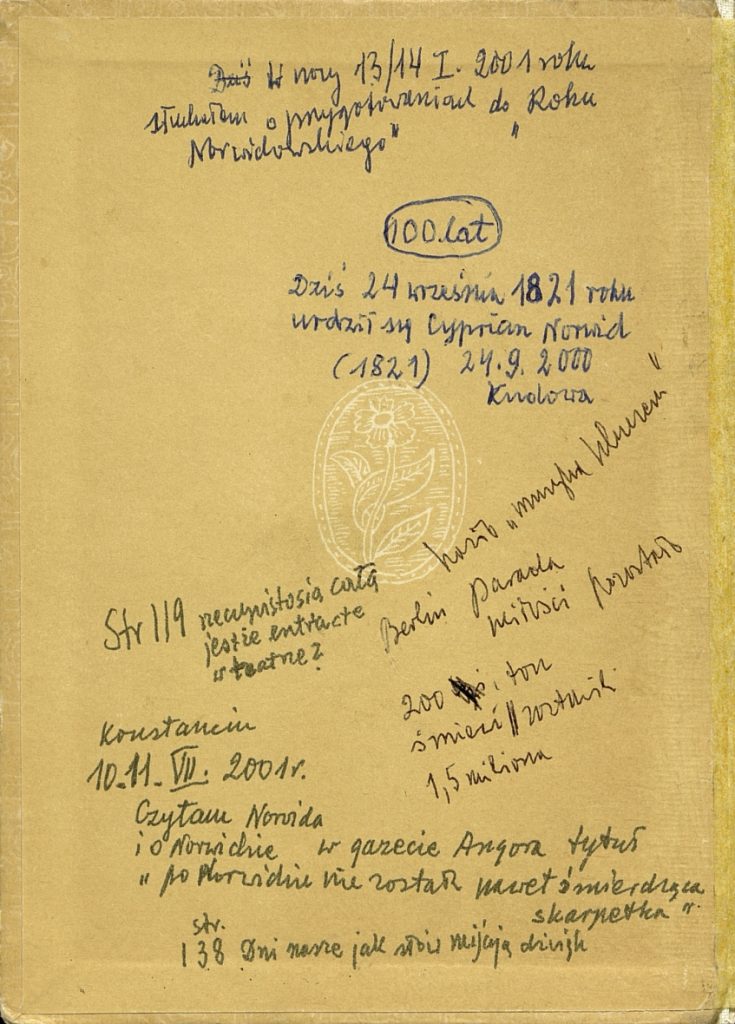 ~~Dziś~~ W nocy 13/14 I. 2001 roku
słuchałem o przygotowaniach do „Roku
Norwidowskiego"
100 lat
Dziś 24 września 1821 roku
urdził się Cyprian Norwid
(1821) 24.9.2000
Kudowa
hasło „muzyka kluczem"
Berlin Parada
miłości pozostało
200 ton
śmieci
1,5 miliona
Str 119 rzeczywistością całą
jest że entracte
w teatrze?
Konstancin
10.11. VII. 2001r.
Czytam Norwida
i o Norwidzie w gazecie Angora tytuł
„po Norwidzie nie został nawet śmierdząca
skarpetka".
str.
138 Dni nasze jak słów mijają dźwięk